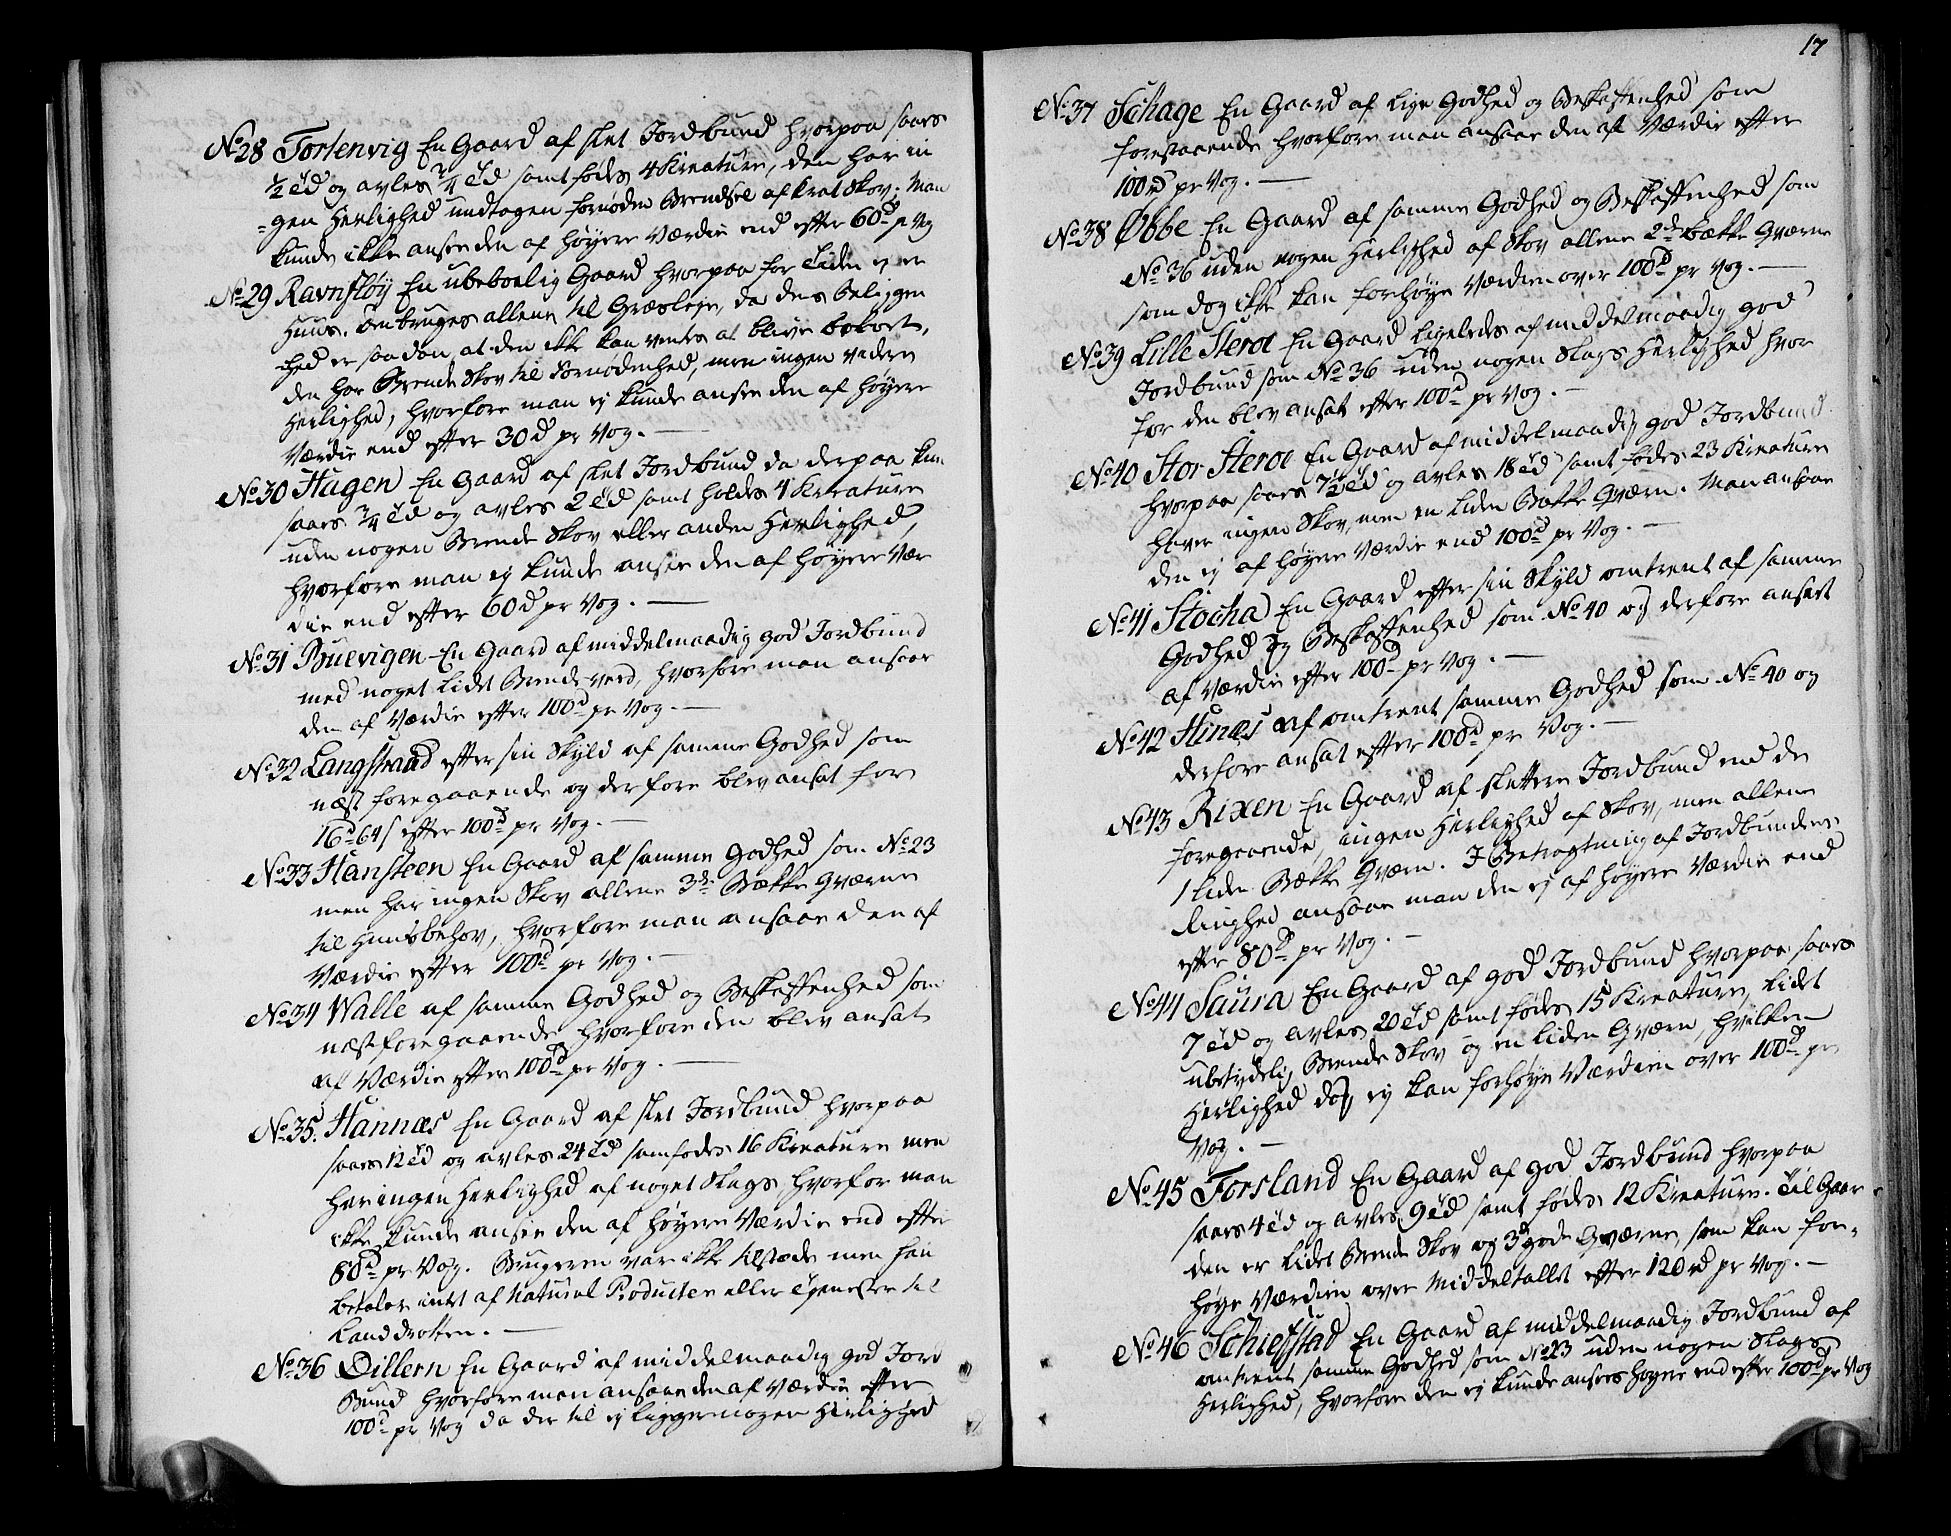 No 28 Tortenvig En Gaard af slet Jordbund hvorpaa saaes
½ Td og avles ¾ Td samt fødes 4 Kreature, den har in
gen Herlighed undtagen fornøden Brendsel af Krat Skov. Man
kunde ikke ansee den af høyere Værdie end efter 60d pr Vog
No 29 Ravnfløy En ubeboelig Gaard hvorpaa for Tiden ej er
Huus. Den bruges allene til Græsleje, da dens Beliggen
hed er saadan, at den ikke kan ventes at blive beboet.
den har Brende Skov til Fornødenhed, men ingen videre
Herlighed, hvorfore man ej kunde ansee den af høyere
Værdie end efter 30d pr Vog. —
No 30 Hagen En Gaard af slet Jordbund da derpaa kun
saaes ¾ Td og avles 2 Td samt holdes 4 Kreature
uden nogen Brende Skov eller anden Herlighed,
hvorfore man ej kunde ansee den af høyere Vær
die end efter 60d pr Vog. —
No 31 Buevigen En Gaard af middelmaadig god Jordbund
med noget lidet Brende-veed, hvorfore man ansaae
den af Værdie efter 100d pr Vog. —
No 32 Langstrand efter sin Skyld af samme Godhed som
næst foregaaende og derfore blev ansat for
16d 64s efter 100d pr Vog. —
No 33 Hansteen En Gaard af samme Godhed som No 23
men har ingen Skov allene 3de Bække Qværne
til Huusbehov, hvorfore man ansaae den af
Værdie efter 100d pr Vog. —
No 34 Walle af samme Godhed og Beskaffenhed som
næstforegaaende, hvorfore den blev ansat
af Værdie efter 100d pr Vog. —
No 35. Hannæs En Gaard af slet Jordbund hvorpaa
saaes 12 Td og avles 24 Td samt fødes 16 Kreature men
har ingen Herlighed af noget Slags hvorfor man
ikke kunde ansee den af høyere Værdie end efter
80d pr Vog. Brugeren var ikke tilstæde men han
betaler intet af Natural Producter eller Tjenester til
Landdrotten. —
No 36 Dillern En Gaard af middelmaadig god Jord
Bund hvorfore man ansaae den af Værdie efter
100d pr Vog da der til ej ligger nogen Herlighed
17
No 37 Schage En Gaard af lige Godhed og Beskaffenhed som
forestaaende hvorfore man ansaae den af Værdie efter
100rd pr Vog. —
No 38 Øbbe En Gaard af samme Godhed og Beskaffenhed som
No 36 uden nogen Herlighed af Skov allene 2de Bække Qværne
som dog ikke kan forhøye Værdien over 100d pr Vog. —
No 39 Lille Steroe En Gaard ligeledes af middelmaadig god
Jordbund som No 36 uden nogen Slags Herlighed hvor
for den blev ansat efter 100d pr Vog. —
No 40 Stor Steroe En Gaard af middelmaadig god Jordbund
hvorpaa saaes 7½ Td og avles 18 Td samt fødes 23 Kreature
haver ingen Skov, men en liden Bække Qværn. Man ansaae
den ej af høyere Værdie end 100d pr Vog. —
No 41 Stocha En Gaard efter sin Skyld omtrent af samme
Godhed og Beskaffenhed som No 40 og derfore ansat
af Værdie efter 100d pr Vog. —
No 42 Hinæs af omtrent samme Godhed som No 40 og
derfore ansat efter 100d pr Vog. —
No 43 Rixen En Gaard af slettere Jordbund end de
foregaaende, ingen Herlighed af Skov, men allene
1 liden Bække Qværn. I Betragtning af Jordbundens
Ringhed ansaae man den ej af høyere Værdie end
efter 80d pr Vog. —
No 44 Saura En Gaard af god Jordbund hvorpaa saaes
7 Td og avles 20 Td samt fødes 15 Kreature, lidet
ubetydelig Brende Skov og en liden Qværn, hvilken
Herlighed dog ej kan forhøye Værdien over 100d pr
Vog. —
No 45 Forsland En Gaard af god Jordbund hvorpaa
saaes 4 Td og avles 9 Td samt fødes 12 Kreature. Til Gaar
den er lidet Brende Skov og 3 gode Qværne, som kan for-
høye Værdien over Middeltallet efter 120rd pr Vog. —
No 46 Schiefstad En Gaard af middelmaadig Jordbund af
omtrent samme Godhed som No 23 uden nogen Slags
Herlighed, hvorfore den ej kunde ansees høyere end efter 100d pr Vog